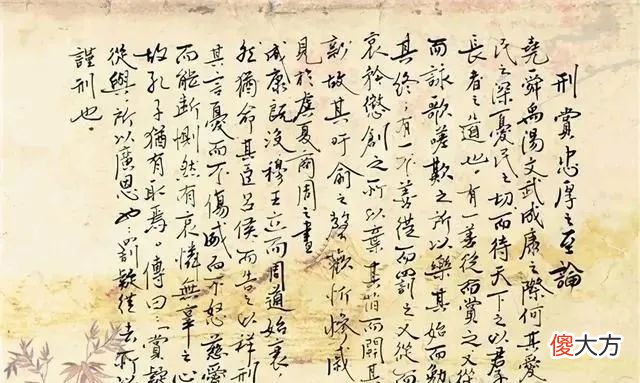 刑賞忠厚之至論
堯舜禹湯文武成康之際何其愛
民之深憂民之切而待天下之以君
長者之道也。有一善從而賞之又從
而詠歌嗟歎之所以樂其始而勉
其終有一不善從而罰之又從而
哀矜懲創之所以棄其舊而開其
新故其吁俞之聲歡忻慘戚
見於虞夏商周之書
成康既沒穆王立而周道始衰
然猶命其臣呂侯而告之以祥刑
其言憂而不傷威而不怒慈愛
而能斷惻然有哀憐無辜之心
故孔子猶有取焉。傳曰:「賞疑
從與,所以廣恩也;罰疑從去所以
謹刑也。
傻大方